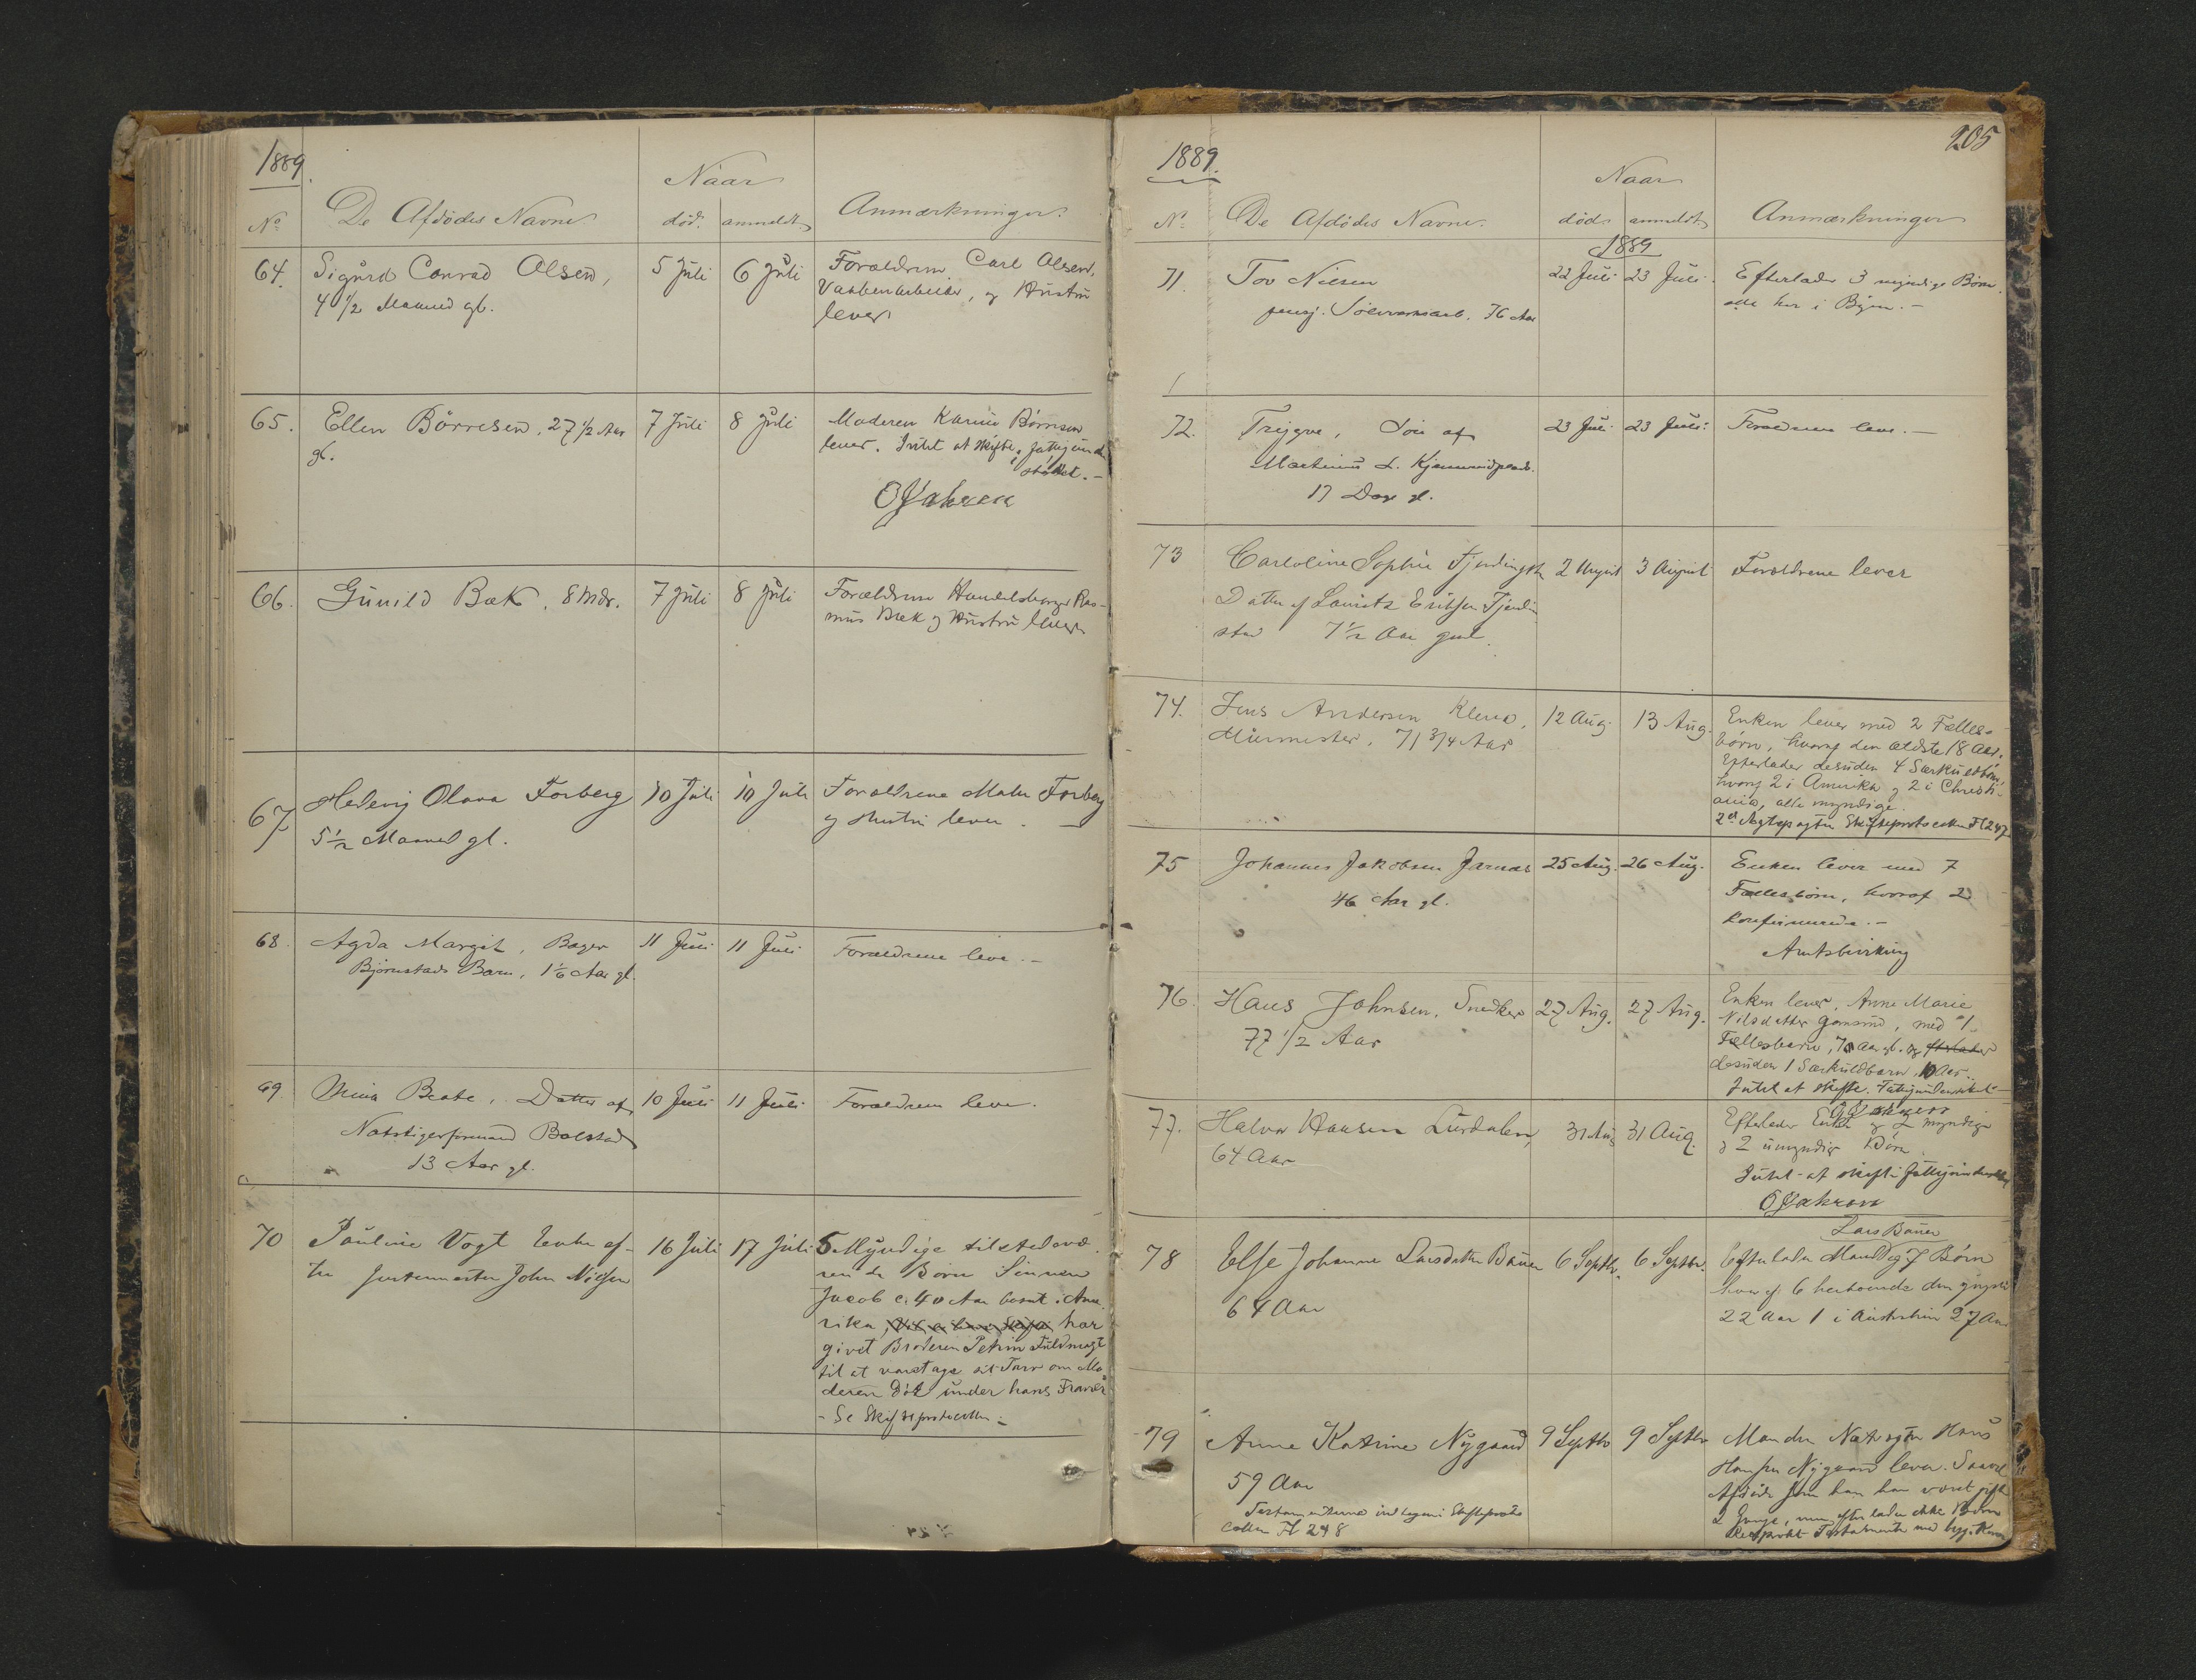 1889.
Naar
No De Afdødes Navne død. anmeldt. Anmærkninger.
64. Sigurd Conrad Olsen, 5 Juli 6 Juli Forældrene Carl Olsen,
4 1/2 Maaned gl. Vaabenarbeider, og Hustru
lever.
65. Ellen Börresen, 27 1/2 Aar 7 Juli 8 Juli Moderen Karine Börresen
gl. lever. Intet at skifte, fattigunder
støttet.-
66. Gunild Bæk, 8 Mdr. 7 Juli 8 Juli Forældrene Handelsborger Ras-
mus Bæk og Hustru lever
67 Hedevig Olava Forberg 10 Juli 10 Juli Forældrene Maler Forberg
5 1/2 Maaned gl. og Hustru lever. -
68. Agda Margit, Bager 11 Juli 11 Juli Forældrene leve.-
Bjørnstads Barn, 1 1/6 Aar gl.
69. Mina Beate, Datter af 10 Juli 11 Juli Forældrene leve.
Natstigerformand Bolstad
13 Aar gl.
70 Pauline Vogt Enke ef- 16 Juli 17 Juli 5 Myndige tilstedevæ-
ter John Nilsen rende Børn Sønnen
Jacob c. 40 Aar bosat i Ame-
rika, har
givet Broderen Fuldmagt
til at varetage sit Tarv om Mo
deren død under hans Fravær
- Se Skifteprotocollen -
1889. 205
Naar
No De Afdødes Navne. død anmeldt Anmærkninger
1889
71. Tov Nilsen 22 Juli 23 Juli. Efterlader 3 myndige Børn
pensj. Sølvverksarb. 76 Aar alle her i Byen.-
72. Trygve, Søn af 23 Juli 23 Juli. Forældrene leve.-
Martinius L.
17 Dage gl.
73 Caroline Sophie 2 August 3 August Forældrene lever
Datter af Lauritz Eriksen
stad 7 1/2 Aar gml.
74. Jens Andersen Kleiva, 12 Aug. 13 Aug. Enken lever med 2 Fælles-
Murmester, 71 3/4 Aar børn, hvoraf den ældste 18 Aar.
Efterlader desuden 4 Særkuldbørn,
hvoraf 2 i Amerika og 2 i Christi-
ania, alle myndige.
Skifteprotocollen Fl 247.
75 Johannes Jakobsen Jarnæs 25 Aug. 26 Aug. Enken lever med 7
46 Aar gl. Fællesbørn, hvoraf 2
konfirmerede.-
76. Hans Johnsen, Snedker 27 Aug. 27 Aug. Enken lever, Anne Marie
77 1/2 Aar Nilsdatter, med 1
Fællesbarn, Aar gl. og efterlader
desuden 1 Særkuldbarn, 10 Aar.
Intet at skifte. Fattigunderstøttet
77. Halvor Hansen Lurdalen 31 Aug 31 Aug. Efterlader Enke og 2 myndige
64 Aar og 2 umyndige Børn
Intet at skifte fattigunderstøttet
Lars Bauer
78 Else Johanne Larsdatter Bauer 6 Septbr. 6 Septbr. Efterlader Mand og 7 Børn
64 Aar hvoraf 6 herboende den yngste
22 Aar 1 i Australien 27 Aar
79 Anne Katrine Nygaard 9 Septbr 9 Septbr Manden Hans
59 Aar Hansen Nygaard lever. Saavel
Testamenterne indtagen i Skifteproto Afdøde som han har været gift
collen Fl 248 2 Gange, men efterlader ikke Børn
Testamente med